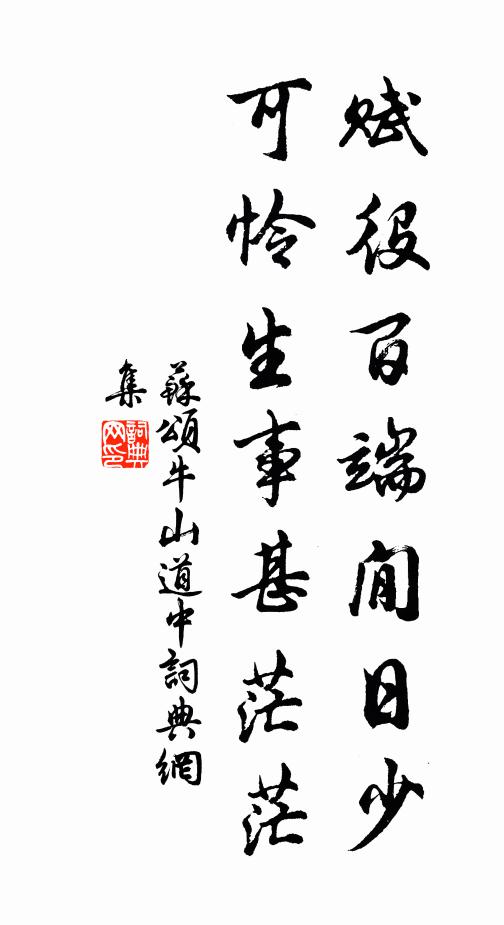 賦役百端閒日少
可怜生事甚茫茫
蘇頌牛山道中詞典網
集
詞典
网印